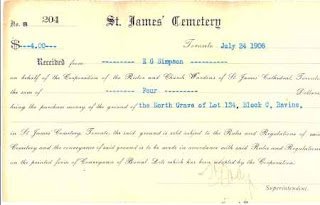 No. m 204 St. James' Cemetery
$ --4.00---- Toronto July 24 1906
Received from --------- E G Simpson ---------
on behalf of the Corporation of the Rector and Church Wardens of St James Cathedral, Toronto,
the sum of --------- Four --------- Dollars,
being the purchase money of the ground of the North Grave of Lot 134, Block C, Ravine,
in St James' Cemetery, Toronto, the said ground is sold subject to the Rules and Regulations of said
Cemetery and the conveyance of said ground is to be made in accordance with said Rules and Regulations
on the printed form of Conveyance of Burial Lots which has been adopted by the Corporation.
Superintendent.